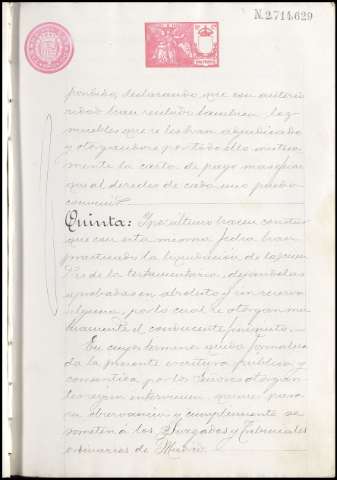 N.2.714.629
partido, declarando que con anterio
ridad han recibido tambien los
muebles que se les han adjudicado
y otorgandose por todo ello mutua
mente la carta de pago mas eficaz
que al derecho de cada uno pueda
convenir.
Quinta: Y por último hacen constar
que con esta misma fecha han
practicado la liquidación de las
de la testamentaria, dejandolas
aprobadas en absoluto y sin reserva
alguna, por lo cual se otorgan mu
tuamente el conducente finiquito.
En cuyos terminos queda formaliza
da la presente escritura publica y
los Señores otorgan
tes segun intervienen, quienes para
su observancia y cumplimiento se
someten á los Juzgados y Tribunales
ordinarios de Madrid.